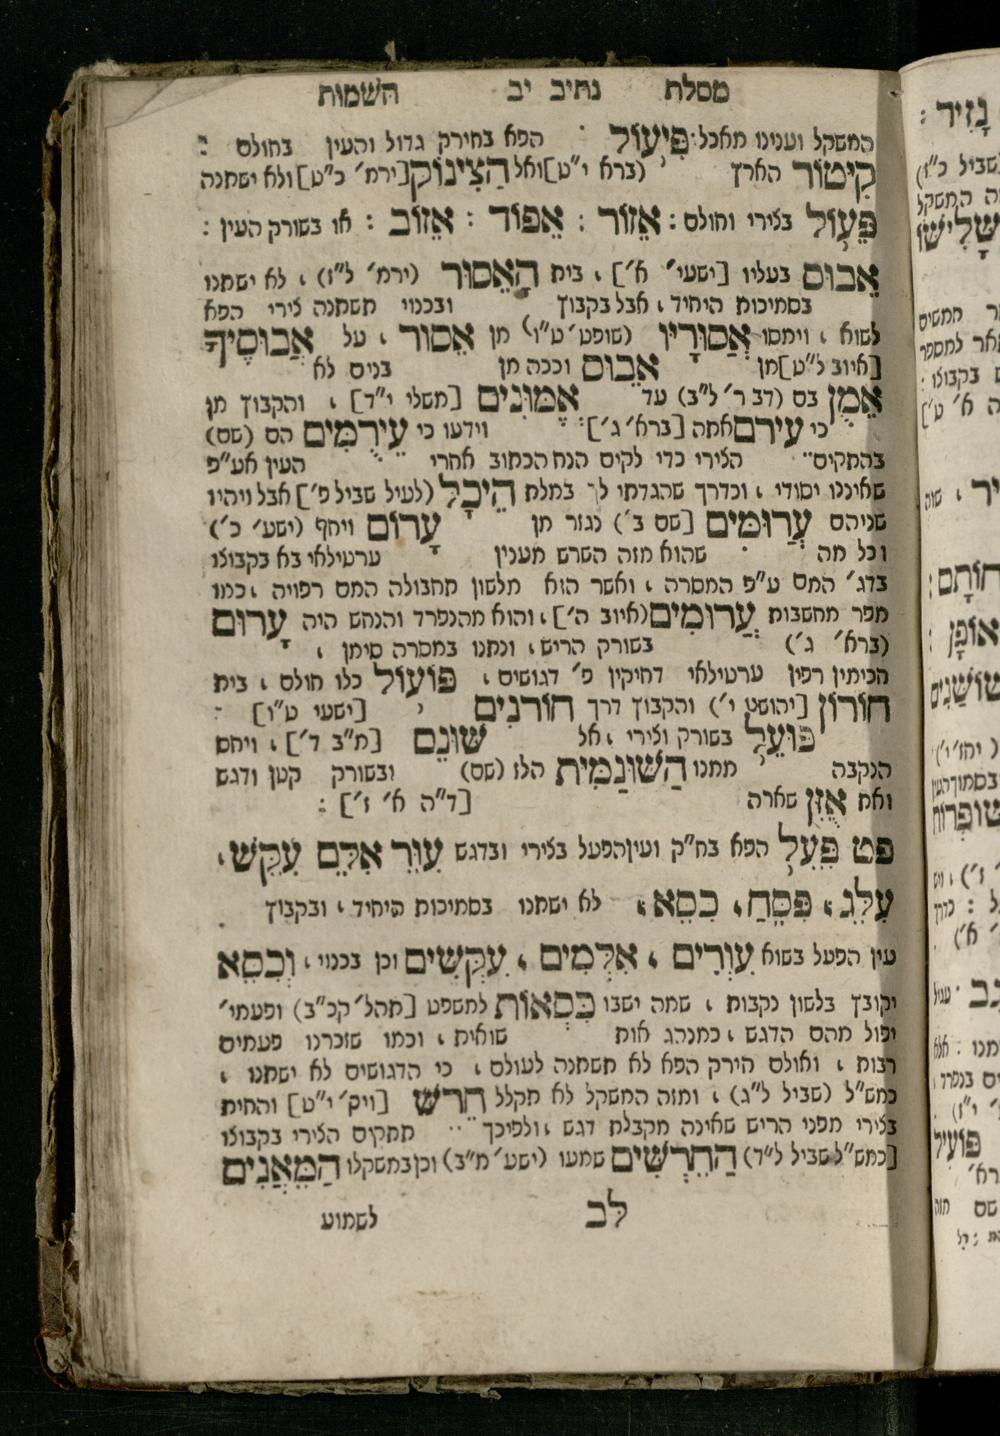 מסלת נתיב יב השמות
המשקל וענינו מאכל: פִּיעוֹל הפא בחירק גדול והעין בחולם :
קִיטוֹר הארץ (ברא י״ט) ואל הַצִּינוֹק [ירמ׳ כ״ט] ולא ישתנה
פֵּעוֹל בצירי וחולם : אֵזוֹר : אֵפוֹד : אֵזוֹב : או בשורק העין :
אֵבוּס בעליו [ישעי׳ א׳] , בית הָאֵסוּר (ירמ׳ ל״ז) , לא ישתנו
בסמיכות היחיד , אבל בקבוץ ובכנוי תשתנה צירי הפא
לשוא , וימסו אֱסוּרָיו (שופט׳ ט״ו) מן אֵסוּר , על אֲבוּסֶיךָ
[איוב ל״ט] מן אֵבוּס וככה מן בנים לא
אֵמֻן בם (דבר׳ ל״ב) עד אֱמוּנִים [משלי י״ד] , והקבוץ מן
כי עירם אתה [ברא׳ ג׳] וידעו כי עֵירֻמִּים הם (שם)
בהתקים הצירי כדי לקים הנח הכתוב אחרי העין אע״פ
שאיננו יסודי , וכדרך שהגדתי לך במלת הֵיכָל (לעיל שביל פ׳) אבל ויהיו
שניהם עֲרוּמִּים [שם ב׳] נגזר מן עָרוֹם ויחף (ישע׳ כ׳)
וכל מה שהוא מזה השרש מענין ערטילאי בא בקבוצו
בדג׳ המם ע״פ המסרה , ואשר הוא מלשון תחבולה המם רפויה , כמו
מפר מחשבות עֲרוּמִים (איוב ה׳) , והוא מהנפרד והנחש היה עָרוּם
(ברא׳ ג׳) בשורק הריש , ונתנו במסרה סימן ,
חכימין רפין ערטילאי דחיקין פ׳ דגושים , פּוֹעוֹל כלו חולם , בית
חוֹרוֹן [יהושע י׳) והקבוץ דרך חוֹרֹנִים [ישעי ט״ו]
פּוּעֵל בשורק וצירי , אל שׁוּנֵם [מ״ב ד׳] , ויחס
הנקבה ממנו הַשּׁוּנַמִּית הלז (שם) ובשורק קטן ודגש
ואת אֻזֵּן שארה [ד״ה א׳ ז׳] :
פט פִּעֵל הפא בח״ק ועין הפעל בצירי ובדגש עִוֵּר אִלֵּם עִקֵּשׁ ,
עִלֵּג , פִּסֵּחַ , כִּסֵּא , לא ישתנו בסמיכות היחיד , ובקבוץ
עין הפעל בשוא עִוְרִים , אִלְּמִים , עִקְּשִׁים וכן בכנוי , וְכִסֵּא
יקובץ בלשון נקבות , שמה ישבו כִּסְאוֹת למשפט [תהל׳ קכ״ב) ופעמי׳
יפול מהם הדגש , כמנהג אות שואית , וכמו שזכרנו פעמים
רבות , ואולם חירק הפא לא תשתנה לעולם , כי הדגושים לא ישתנו ,
כמש״ל (שביל ל״ג) , ומזה המשקל לא תקלל חֵרֵשׁ [ויק׳ י״ט] והחית
בצירי מפני הריש שאינה מקבלת דגש , ולפיכך תתקים הצירי בקבוצו
[כמש״ל שביל ל״ד) הַחֵרְשִׁים שמעו (ישע׳ מ״ב) וכן במשקלו הַמֵּאֲנִים
לב לשמוע